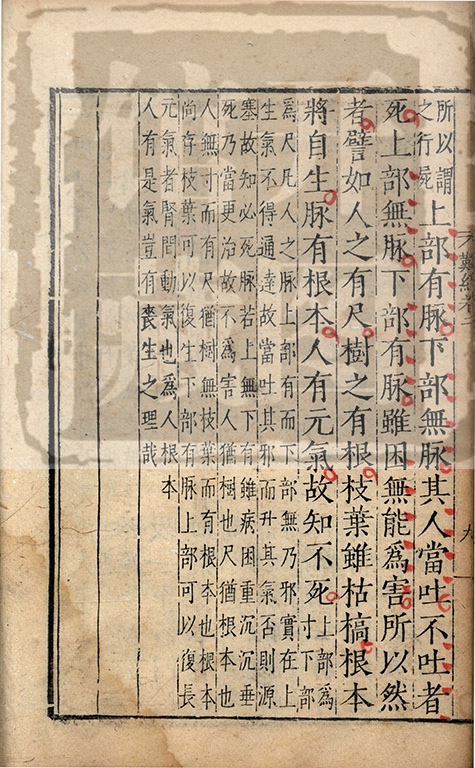 難經卷 九
所以謂
之行屍
上部有脉下部無脉其人當吐不吐者
死上部無脉下部有脉雖困無能爲害所以然
者譬如人之有尺樹之有根枝葉雖枯槁根本
將自生脉有根本人有元氣故知不死
上部爲
寸下部
爲尺凡人之脉上部有而下部無乃邪實在上
生氣不得通達故當吐其邪而升其氣否則源
塞故知必死脉若上無下有雖病困重沉沉垂
死乃當更治故不爲害人猶樹也尺猶根本也
人無寸而有尺猶樹無枝葉而有根本也根本
尚存枝葉可以復生下部有脉上部可以復長
元氣者腎間動氣也爲人根本
人有是氣豈有喪生之理哉